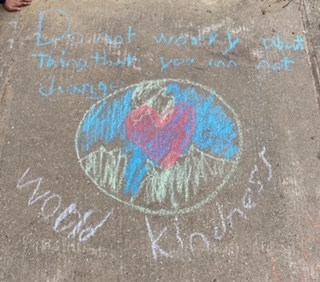 Do not worry about
Things that you can not
change
World Kindness